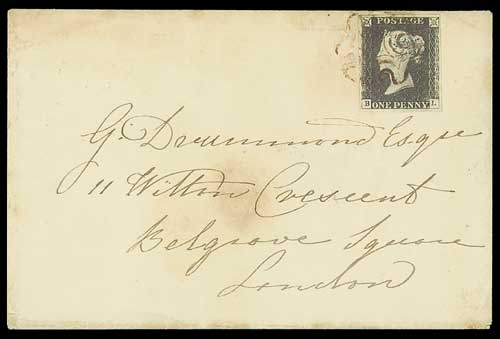 POSTAGE
B L
ONE PENNY
G. Drummond Esqre
11 Wilton Crescent
Belgrave Square
London